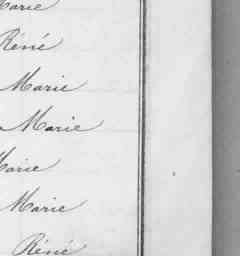 Marie
René
Marie
Marie
Marie
Marie
René